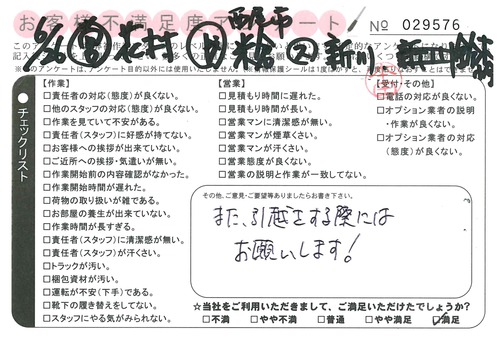 お客様不満足度アンケート
No 029576
チェックリスト
【作業】
□責任者の対応(態度)が良くない。
□他のスタッフの対応(態度)が良くない。
□作業を見ていて不安がある。
□責任者(スタッフ)に好感が持てない。
□お客様への挨拶が出来ていない。
□ご近所への挨拶・気遣いが無い。
□作業開始前の内容確認がなかった。
□作業開始時間が遅れた。
□荷物の取り扱いが雑である。
□お部屋の養生が出来ていない。
□作業時間が長すぎる。
□責任者(スタッフ)に清潔感が無い。
□責任者(スタッフ)が汗くさい。
□トラックが汚い。
□梱包資材が汚い。
□運転が不安(下手)である。
□靴下の履き替えをしてない。
□スタッフにやる気がみられない。
【営業】
□見積もり時間に遅れた。
□見積もり時間が長い。
□営業マンに清潔感が無い。
□営業マンが煙草くさい。
□営業マンが汗くさい。
□営業態度が良くない。
□営業の説明と作業が一致してない。
【受付・その他】
□電話の対応が良くない。
□オプション業者の説明
・作業が良くない。
□オプション業者の対応
(態度)が良くない。
その他、ご意見・ご要望等ありましたらお書き下さい。
また、引越をする際には
お願いします!
☆当社をご利用いただきまして、ご満足いただけたでしょうか?
□不満 □やや不満 □普通 □やや満足 ☑満足